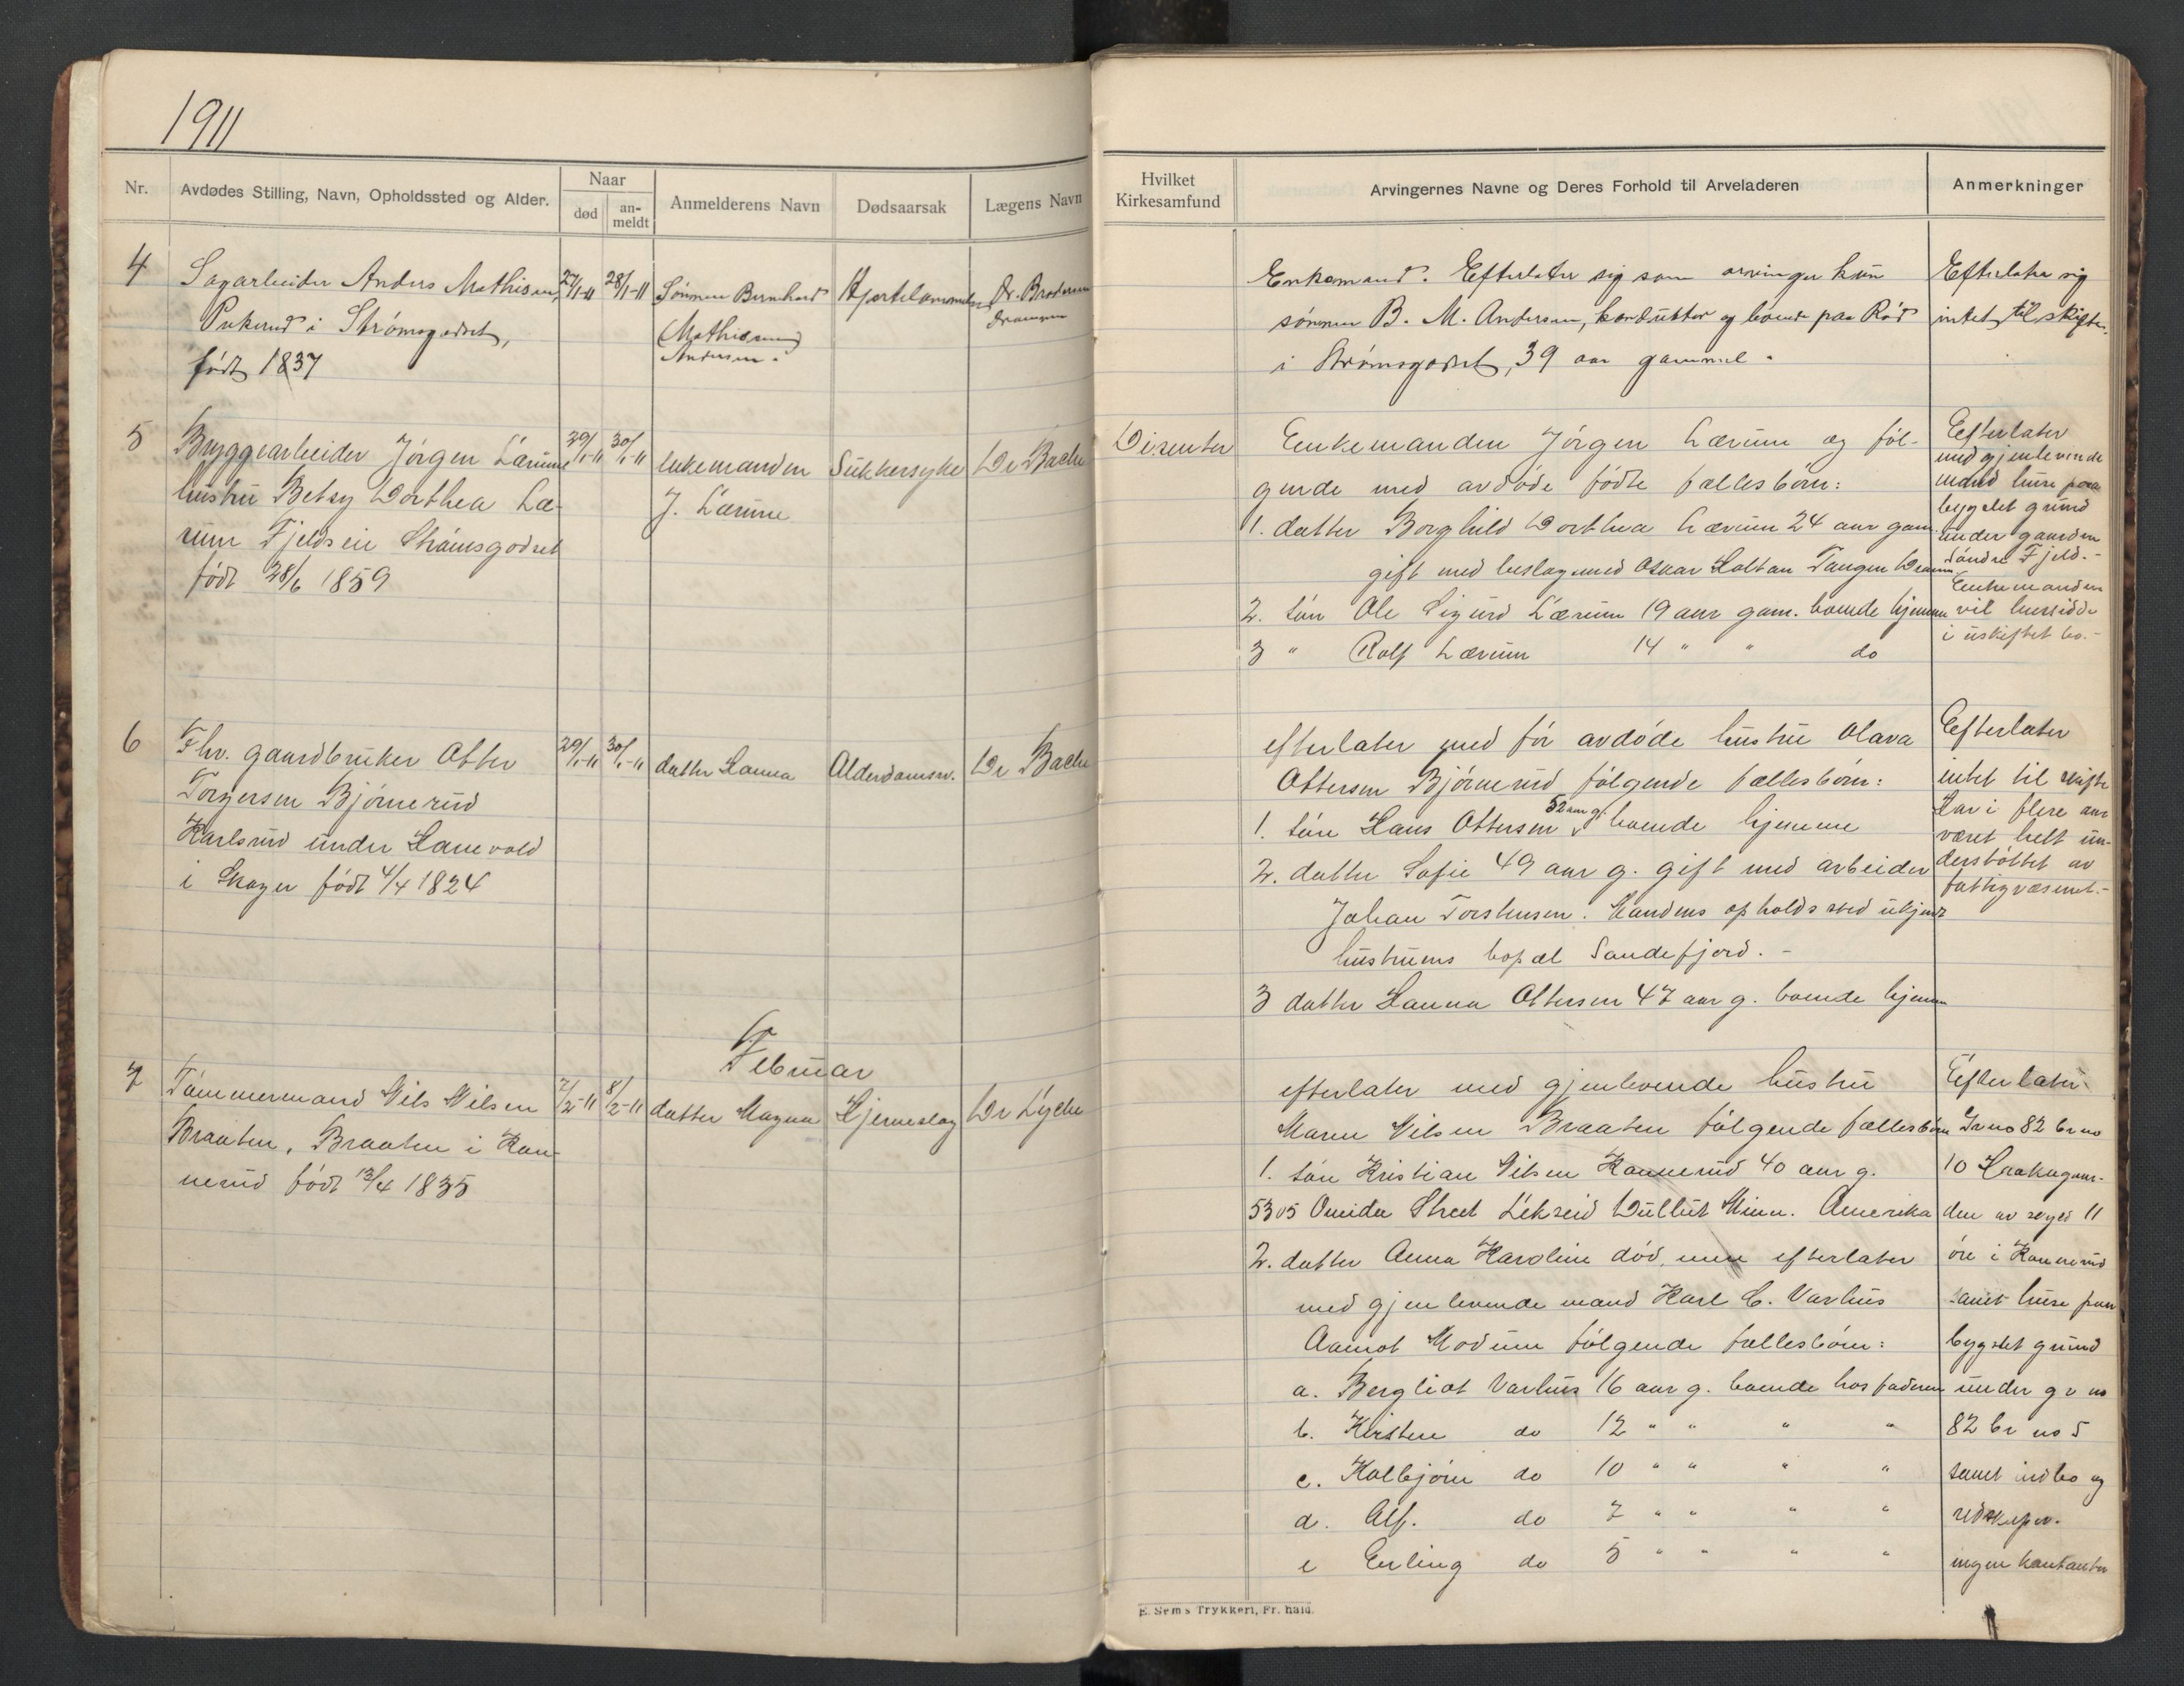 1911
Nr.
Avdødes Stilling, Navn, Opholdssted og Alder.
Naar
død
an-
meldt
Anmelderens Navn
Dødsaarsak
Lægens Navn
4
Sagarbeider Anders Mathisen,
Pukerud i Strømsgodset,
født 1837
27/1-11
28/1-11
Sønnen Bernhard
Mathias
Andersen.
Hjertelammelse
Dr. Brodersen
Drammen
5
Bryggearbeider Jørgen Lærums
hustru Betsy Dorthea Læ-
rum Fjeldseie Strømsgodset
født 28/6 1859
29/1-11
30/1-11
enkemanden
J. Lærum
Sukkersyke
Dr Bache
6
Fhv. gaardbruker Otter
Torgersen Bjørnerud
Karlsrud under Hanevold
i Skoger født 4/4 1824
29/1-11
30/1-11
datter Hanna
Alderdomsv.
Dr Bache
Februar
7
Tømmermand Nils Nilsen
Braaten, Braaten i Kon-
nerud født 13/4 1835
7/2-11
8/2-11
datter Magna
Hjerneslag
Dr Lyche
Hvilket
Kirkesamfund
Arvingernes Navne og Deres Forhold til Arveladeren
Anmerkninger
Enkemand. Efterlater sig som arvinger kun
sønnen B. M. Andersen, konduktør og boende paa Rød
i Strømsgodset, 39 aar gammel.
Efterlater sig
intet til skifte.
Disenter
Enkemanden Jørgen Lærum og føl-
gende med avdøde fødte fællesbørn:
1. datter Borghild Dorthea Lærum 24 aar gam.
gift med beslagsmed Oskar Holtan Tangen Dramm
2. søn Ole Sigurd Lærum 19 aar gam. boende hjemme
3 " Rolf Lærum 14 " " do
Efterlater
med gjenlevende
mand huse paa
bygslet grund
under gaarden
Søndre Fjeld.-
Enkemanden
vil hensidde
i uskiftet bo.-
efterlater med før avdøde hustru Olava
Ottersen Bjørnerud følgende fællesbørn:
1. søn Hans Ottersen 52 aar g. boende hjemme
2. datter Sofie 49 aar g. gift med arbeider
Johan Torstensen. Mandens opholdssted ukjendt
hustruens bopæl Sandefjord.-
3 datter Hanna Ottersen 47 aar g. boende hjemme
Efterlater
intet til skifte
Har i flere aar
været helt un-
derstøttet av
fattigvæsenet.-
efterlater med gjenlevende hustru
Maren Nilsen Braaten følgende fællesbørn
1. søn Kristian Nilsen Konnerud 40 aar g.
5305 Oneida Street Lekseid Dullut Minn. Amerika
2. datter Anna Karoline død, men efterlater
med gjenlevende mand Karl C. Varhus
Aamot Modum følgende fællesbørn:
a. Bergliot Varhus 16 aar g. boende hos faderen
b. Kirsten do 12 " " " "
c. Kolbjørn do 10 " " " "
d. Alf. do 7 " " " "
e Erling do 5 " " " "
Efterlater
Gr no 82 br no
10 Haakagaar-
den av skyld 11
øre i Konnerud
samt huse paa
bygslet grund
under gr no
82 br no 5
samt indbo og
redskaper.
ingen kontanter
E. Sem's Trykkeri, Fr. hald.